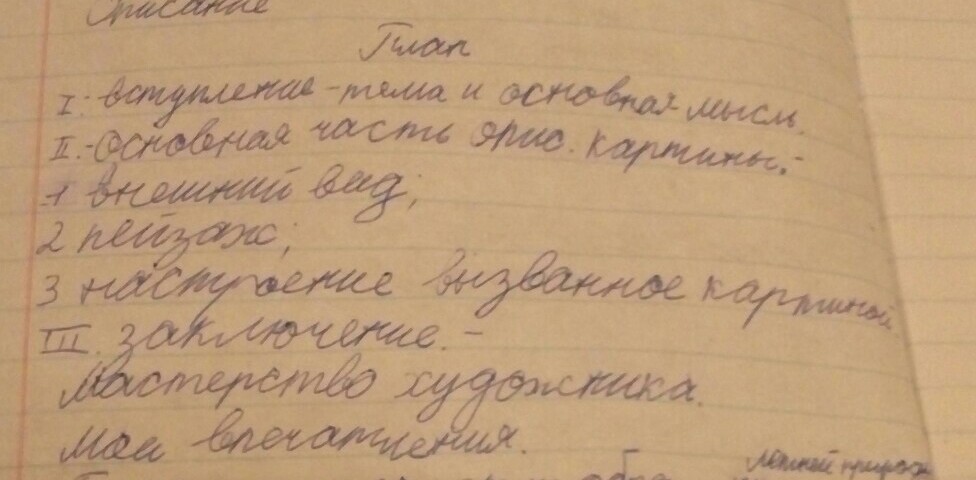 Описание
План
I. вступление - тема и основная мысль.
II. - Основная часть опис. картины: -
1 внешний вид;
2 пейзаж;
3 настроение вызванное картиной
III. заключение. -
Мастерство художника.
Мои впечатления.
летней природы